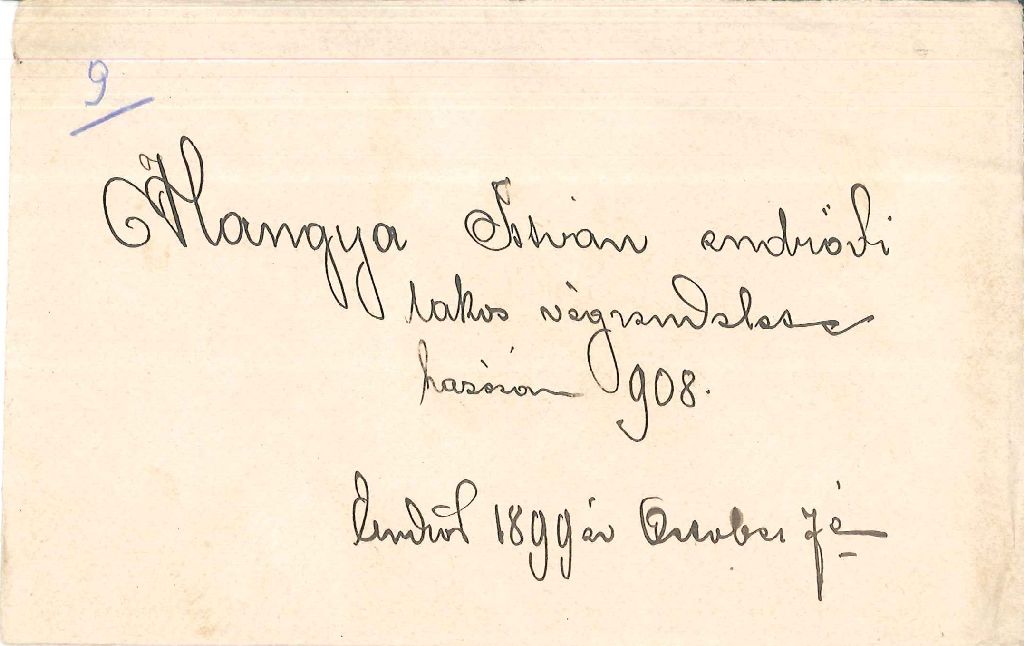 9
Hangya István endrődi
lakos végrendelete
908.
Endrőd 1899 év October 7 é